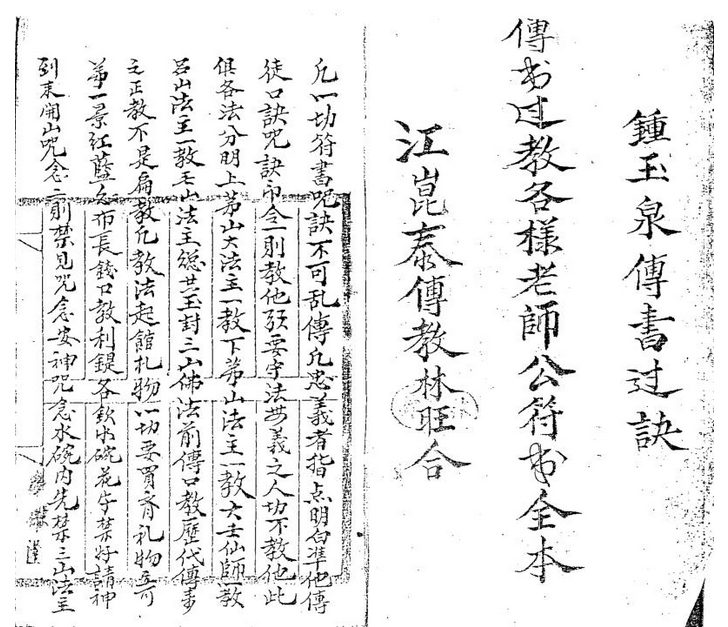 鍾玉泉傳書过訣
傳书过教各樣老師公符书全本
江崑泰傳教林旺合
凢一切符書呪訣不可乱傳凢忠義者指点明白準他傳
徒口訣呪訣帋令一則教他须要守法無義之人切不教他此
俱各法分明上茅山大法主一教下茅山法主一教六壬仙師一教
吕山法主一教王山法主總共玉封三山佛法前傳口教歷代傳來
之正教不是扁教凢教法起舘札物一切要買齊礼物方可
第一景紅藍色布長錢口教利鍉各欵水碗花字禁好請神
到來開山呪念三則禁見呪念安神呪念水碗內先禁三山法主